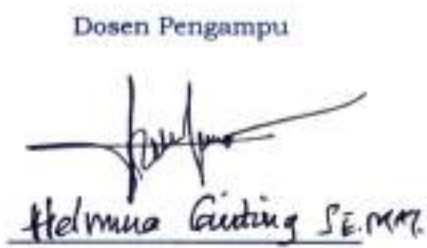 Dosen Pengampu
Helmina Ginting SE.MM.